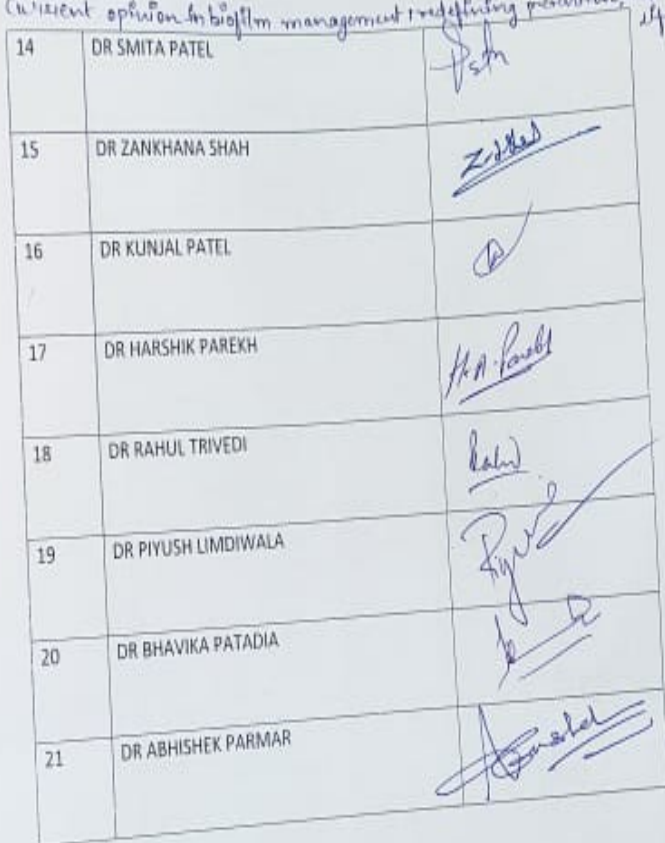 Current opinion in biofilm management : redefining
14 DR SMITA PATEL
15 DR ZANKHANA SHAH
16 DR KUNJAL PATEL
17 DR HARSHIK PAREKH H.A. Parekh
18 DR RAHUL TRIVEDI
19 DR PIYUSH LIMDIWALA
20 DR BHAVIKA PATADIA
21 DR ABHISHEK PARMAR